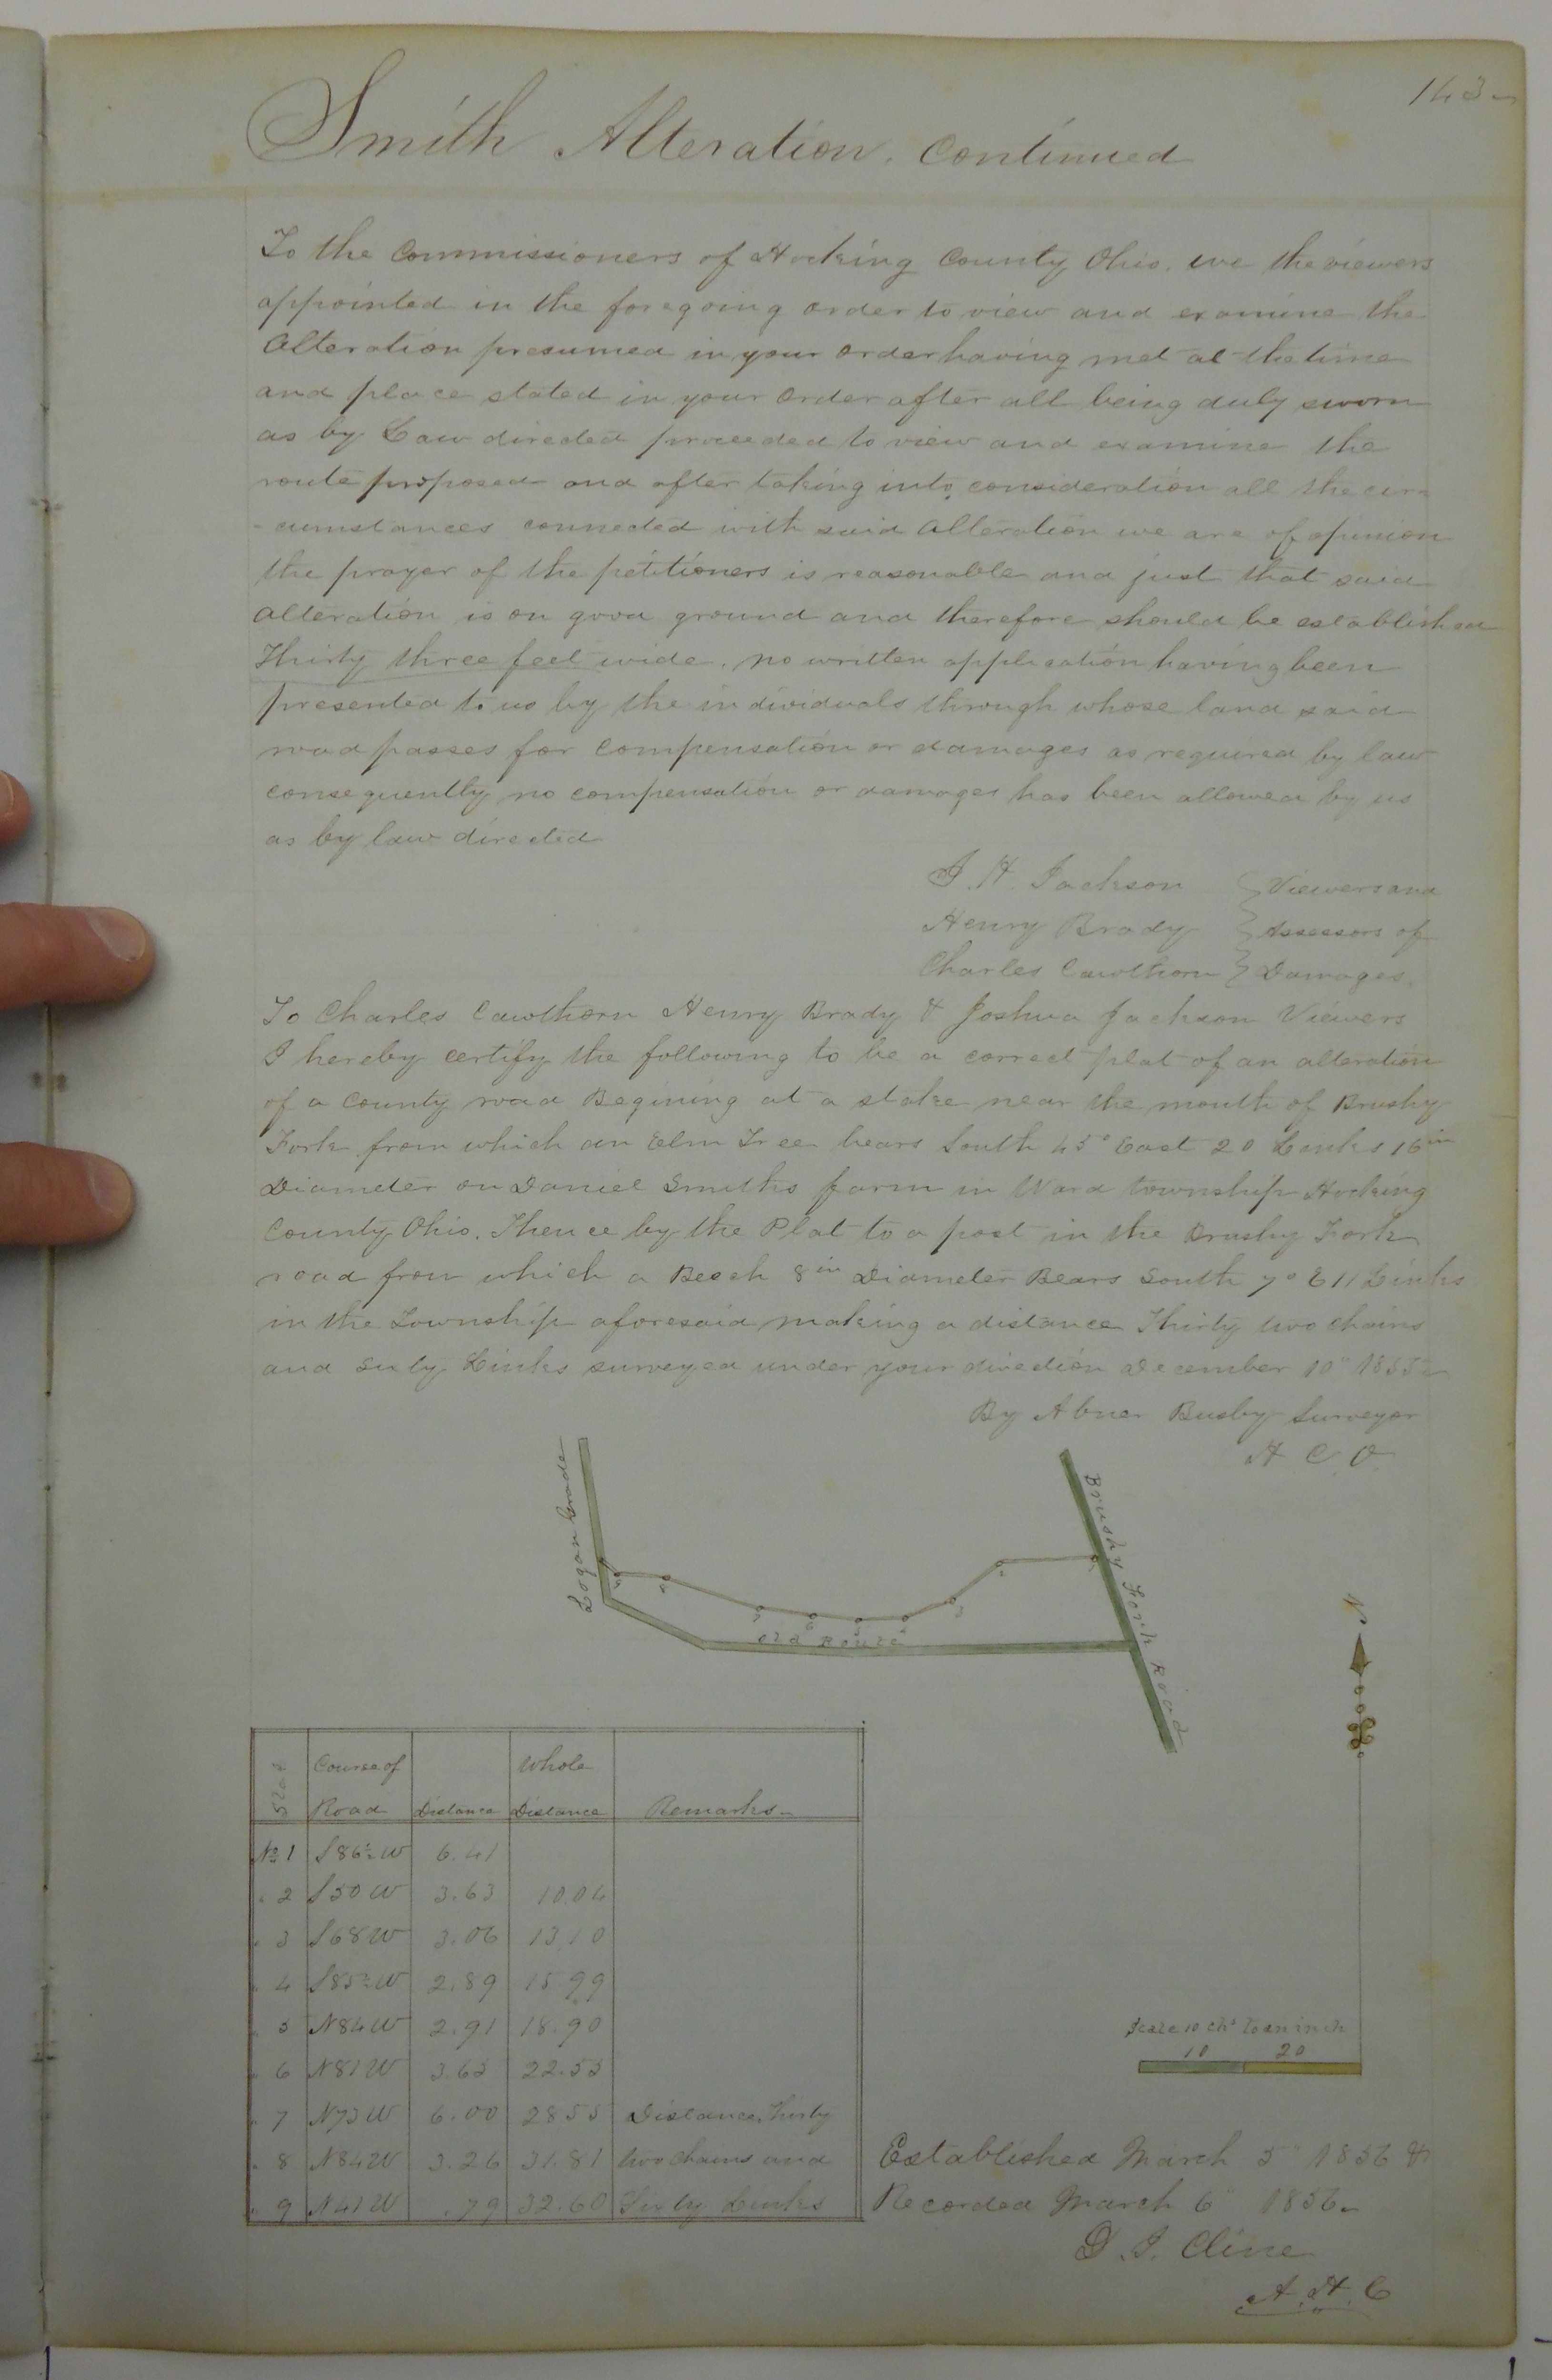 143
Smith Alteration. Continued
To the Commissioners of Hocking County Ohio. we the viewers
appointed in the foregoing order to view and examine the
Alteration presumed in your order having met at the time
and place stated in your order after all being duly sworn
as by Law directed proceeded to view and examine the
route proposed and after taking into consideration all the cir-
-cumstances connected with said Alteration we are of opinion
the prayer of the petitioners is reasonable and just that said
alteration is on good ground and therefore should be established
Thirty three feet wide. no written application having been
presented to us by the individuals through whose land said
road passes for compensation or damages as required by law
consequently no compensation or damages has been allowed by us
as by law directed
J. H. Jackson } Viewers and
Henry Brady } Assessors of
Charles Cawthorn } Damages.
To Charles Cawthorn Henry Brady & Joshua Jackson Viewers
I hereby certify the following to be a correct plat of an alteration
of a County road Begining at a stake near the mouth of Brushy
Fork from which an Elm Tree bears South 45° East 20 Links 16 in
Diameter on Daniel Smiths farm in Ward township Hocking
County Ohio. Thence by the Plat to a post in the Brushy Fork
road from which a Beech 8 in Diameter Bears South 7° E 11 Links
in the Township aforesaid making a distance Thirty two chains
and Sixty Links surveyed under your direction December 10" 1855
By Abner Busby Surveyor
H C O
Logan Grade
Brushy Fork Road
Old Route
N
Stat Course of Road Distance Whole Distance Remarks
No 1 S 86½ W 6.41
" 2 S 50 W 3.63 10.04
" 3 S 68 W 3.06 13.10
" 4 S 85½ W 2.89 15.99
" 5 N 84 W 2.91 18.90
" 6 N 81 W 3.65 22.55
" 7 N 73 W 6.00 28.55 Distance, Thirty
" 8 N 84 W 3.26 31.81 two chains and
" 9 N 41 W .79 32.60 Sixty Links
Scale 10 chs to an inch
10 20
Established March 5" 1856 &
Recorded March 6" 1856
D. J. Cline
A. H. C